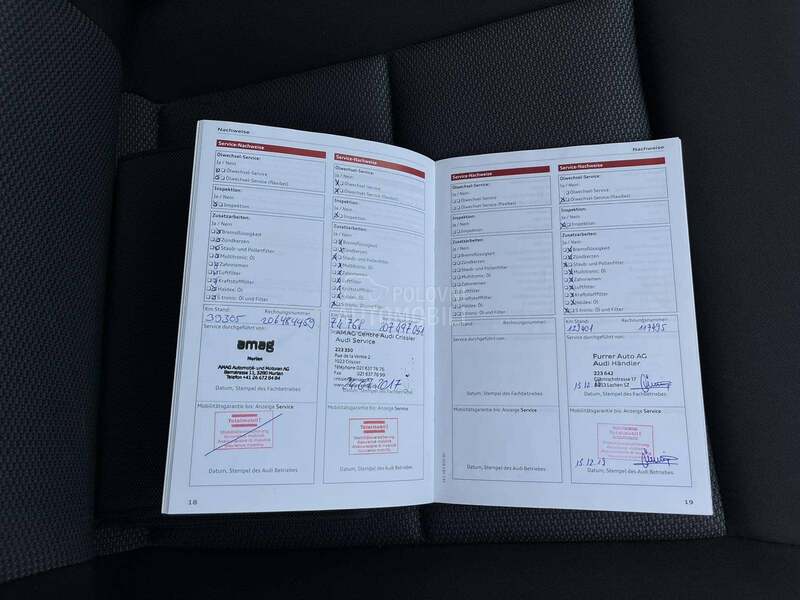 Nachweise
Service-Nachweise
Ölwechsel-Service:
Ja / Nein
Ölwechsel-Service
Ölwechsel-Service (flexibel)
Inspektion:
Ja / Nein
Inspektion
Zusatzarbeiten:
Ja / Nein
Bremsflüssigkeit
Zündkerzen
Staub- und Pollenfilter
Multitronic: Öl
Zahnriemen
Luftfilter
Kraftstofffilter
Haldex: Öl
S tronic: Öl und Filter
Km Stand: Rechnungsnummer:
39305 206484459
Service durchgeführt von:
amag
Murten
AMAG Automobil- und Motoren AG
Bernstrasse 11, 3280 Murten
Telefon +41 26 672 84 84
Datum, Stempel des Fachbetriebes
Mobilitätsgarantie bis: Anzeige Service
Totalmobil!
Datum, Stempel des Audi Betriebes
18
Service-Nachweise
Ölwechsel-Service:
Ja / Nein
Ölwechsel-Service
Ölwechsel-Service (flexibel)
Inspektion:
Ja / Nein
Inspektion
Zusatzarbeiten:
Ja / Nein
Bremsflüssigkeit
Zündkerzen
Staub- und Pollenfilter
Multitronic: Öl
Zahnriemen
Luftfilter
Kraftstofffilter
Haldex: Öl
S tronic: Öl und Filter
AMAG Centre Audi Crissier
Audi Service
223 350
Rue de la Vernie 2
1023 Crissier
Téléphone 021 637 76 76
Fax 021 637 76 99
Datum, Stempel des Fachbetriebes
Mobilitätsgarantie bis: Anzeige Service
Totalmobil!
Datum, Stempel des Audi Betriebes
POLOVNI
AUTOMOBILI
Nachweise
Service-Nachweise
Ölwechsel-Service:
Ja / Nein
Ölwechsel-Service
Ölwechsel-Service (flexibel)
Inspektion:
Ja / Nein
Inspektion
Zusatzarbeiten:
Ja / Nein
Bremsflüssigkeit
Zündkerzen
Staub- und Pollenfilter
Multitronic: Öl
Zahnriemen
Luftfilter
Kraftstofffilter
Haldex: Öl
S tronic: Öl und Filter
Km Stand: Rechnungsnummer:
Service durchgeführt von:
Datum, Stempel des Fachbetriebes
Mobilitätsgarantie bis: Anzeige Service
Datum, Stempel des Audi Betriebes
Service-Nachweise
Ölwechsel-Service:
Ja / Nein
Ölwechsel-Service
Ölwechsel-Service (flexibel)
Inspektion:
Ja / Nein
Inspektion
Zusatzarbeiten:
Ja / Nein
Bremsflüssigkeit
Zündkerzen
Staub- und Pollenfilter
Multitronic: Öl
Zahnriemen
Luftfilter
Kraftstofffilter
Haldex: Öl
S tronic: Öl und Filter
Km Stand: Rechnungsnummer:
Service durchgeführt von:
Furrer Auto AG
Audi Händler
223 642
Lachen SZ
Datum, Stempel des Fachbetriebes
Mobilitätsgarantie bis: Anzeige Service
15.12.19
Datum, Stempel des Audi Betriebes
19